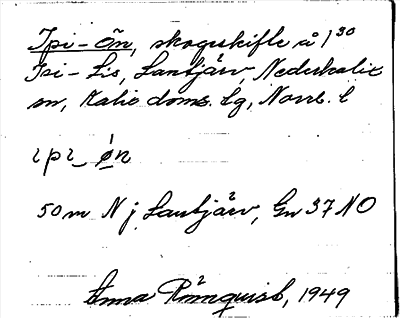 Ipi-ön, skogsskifte å 1³⁰
Isi-Lis, Lantjärv, Nederkalix
sn, Kalix doms. lg, Norrb. l
ɩpɩ‿ ø̀n
50 m N j Lantjärv, Gn 37 NO
Anna Rönnquist, 1949